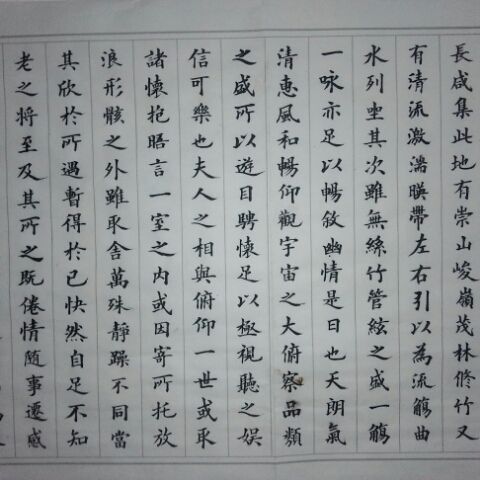 長咸集此地有崇山峻嶺茂林修竹又
有清流激湍暎帶左右引以為流觴曲
水列坐其次雖無絲竹管絃之盛一觴
一咏亦足以暢敘幽情是日也天朗氣
清惠風和暢仰觀宇宙之大俯察品類
之盛所以遊目騁懷足以極視聽之娱
信可樂也夫人之相與俯仰一世或取
諸懷抱晤言一室之内或因寄所托放
浪形骸之外雖取舍萬殊静躁不同當
其欣於所遇暫得於己快然自足不知
老之将至及其所之既倦情隨事遷感